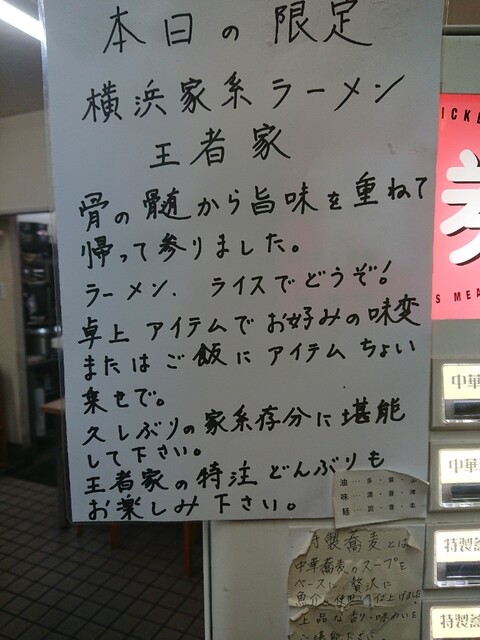 本日の限定
横浜家系ラーメン
王者家
骨の髄から旨味を重ねて
帰って参りました。
ラーメン、ライスでどうぞ!
卓上アイテムでお好みの味変
またはご飯にアイテムちょい
乗せで。
久しぶりの家系存分に堪能
して下さい。
王者家の特注どんぶりも
お楽しみ下さい。
油 ‥ 多 ・ 普
味 ‥ 濃 ・ 普 ・ 薄
麺 ‥ 固 ・ 普 ・ 柔
特製蕎麦とは
中華蕎麦のスープを
ベースに、贅沢に
魚介を使用し仕上げました
上品な香り・味わいを
中華
中華
特製
特製